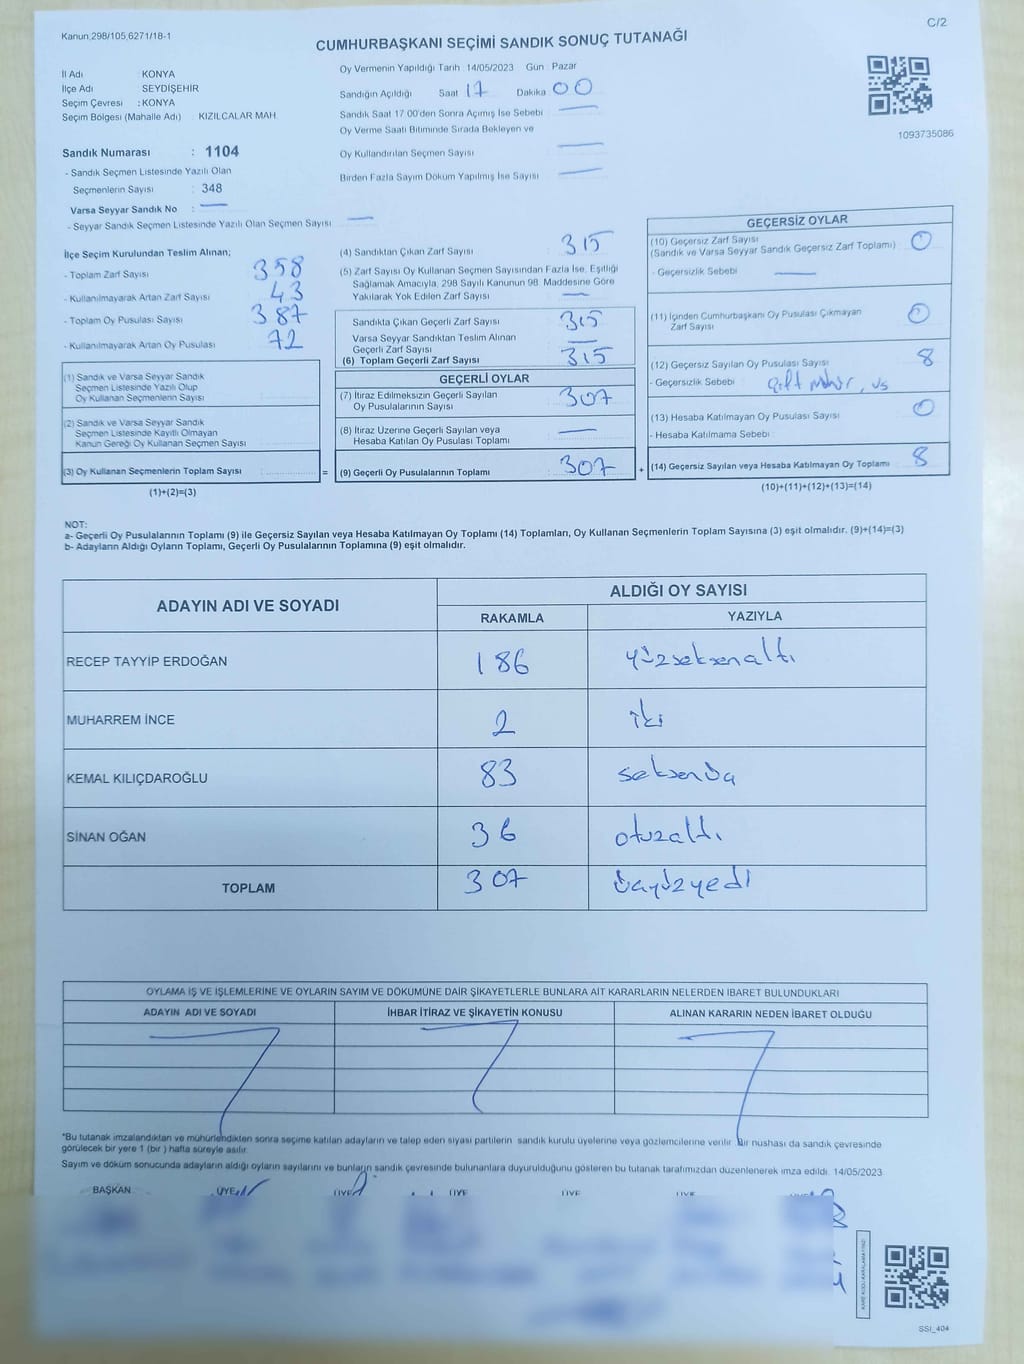 Kanun,298/105,6271/18-1
C/2
CUMHURBAŞKANI SEÇİMİ SANDIK SONUÇ TUTANAĞI
İl Adı KONYA
İlçe Adı SEYDİŞEHİR
Seçim Çevresi : KONYA
Seçim Bölgesi (Mahalle Adı) : KIZILCALAR MAH.
Sandık Numarası : 1104
- Sandık Seçmen Listesinde Yazılı Olan
Seçmenlerin Sayısı : 348
Varsa Seyyar Sandık No : —
- Seyyar Sandık Seçmen Listesinde Yazılı Olan Seçmen Sayısı —
Oy Vermenin Yapıldığı Tarih 14/05/2023 Gün : Pazar
Sandığın Açıldığı Saat 17 Dakika 00
Sandık Saat 17.00'den Sonra Açımış İse Sebebi —
Oy Verme Saati Bitiminde Sırada Bekleyen ve
Oy Kullandırılan Seçmen Sayısı —
Birden Fazla Sayım Döküm Yapılmış İse Sayısı —
1093735086
İlçe Seçim Kurulundan Teslim Alınan;
- Toplam Zarf Sayısı 358
- Kullanılmayarak Artan Zarf Sayısı 43
- Toplam Oy Pusulası Sayısı 387
- Kullanılmayarak Artan Oy Pusulası 72
(1) Sandık ve Varsa Seyyar Sandık
Seçmen Listesinde Yazılı Olup
Oy Kullanan Seçmenlerin Sayısı
(2) Sandık ve Varsa Seyyar Sandık
Seçmen Listesinde Kayıtlı Olmayan
Kanun Gereği Oy Kullanan Seçmen Sayısı
(3) Oy Kullanan Seçmenlerin Toplam Sayısı =
(1)+(2)=(3)
(4) Sandıktan Çıkan Zarf Sayısı 315
(5) Zarf Sayısı Oy Kullanan Seçmen Sayısından Fazla İse, Eşitliği
Sağlamak Amacıyla, 298 Sayılı Kanunun 98. Maddesine Göre
Yakılarak Yok Edilen Zarf Sayısı —
Sandıkta Çıkan Geçerli Zarf Sayısı 315
Varsa Seyyar Sandıktan Teslim Alınan
Geçerli Zarf Sayısı —
(6) Toplam Geçerli Zarf Sayısı 315
GEÇERLİ OYLAR
(7) İtiraz Edilmeksizin Geçerli Sayılan
Oy Pusulalarının Sayısı 307
(8) İtiraz Üzerine Geçerli Sayılan veya
Hesaba Katılan Oy Pusulası Toplamı —
(9) Geçerli Oy Pusulalarının Toplamı 307 +
GEÇERSİZ OYLAR
(10) Geçersiz Zarf Sayısı
(Sandık ve Varsa Seyyar Sandık Geçersiz Zarf Toplamı) 0
- Geçersizlik Sebebi —
(11) İçinden Cumhurbaşkanı Oy Pusulası Çıkmayan
Zarf Sayısı 0
(12) Geçersiz Sayılan Oy Pusulası Sayısı 8
- Geçersizlik Sebebi Çift mühür, vs
(13) Hesaba Katılmayan Oy Pusulası Sayısı 0
- Hesaba Katılmama Sebebi
(14) Geçersiz Sayılan veya Hesaba Katılmayan Oy Toplamı 8
(10)+(11)+(12)+(13)=(14)
NOT:
a- Geçerli Oy Pusulalarının Toplamı (9) ile Geçersiz Sayılan veya Hesaba Katılmayan Oy Toplamı (14) Toplamları, Oy Kullanan Seçmenlerin Toplam Sayısına (3) eşit olmalıdır. (9)+(14)=(3)
b- Adayların Aldığı Oyların Toplamı, Geçerli Oy Pusulalarının Toplamına (9) eşit olmalıdır.
ADAYIN ADI VE SOYADI ALDIĞI OY SAYISI
RAKAMLA YAZIYLA
RECEP TAYYİP ERDOĞAN 186 yüzseksenaltı
MUHARREM İNCE 2 iki
KEMAL KILIÇDAROĞLU 83 seksenüç
SİNAN OĞAN 36 otuzaltı
TOPLAM 307 üçyüzyedi
OYLAMA İŞ VE İŞLEMLERİNE VE OYLARIN SAYIM VE DÖKÜMÜNE DAİR ŞİKAYETLERLE BUNLARA AİT KARARLARIN NELERDEN İBARET BULUNDUKLARI
ADAYIN ADI VE SOYADI İHBAR İTİRAZ VE ŞİKAYETİN KONUSU ALINAN KARARIN NEDEN İBARET OLDUĞU
*Bu tutanak imzalandıktan ve mühürlendikten sonra seçime katılan adayların ve talep eden siyasi partilerin sandık kurulu üyelerine veya gözlemcilerine verilir. Bir nüshası da sandık çevresinde
görülecek bir yere 1 (bir) hafta süreyle asılır.
Sayım ve döküm sonucunda adayların aldığı oyların sayılarını ve bunların sandık çevresinde bulunanlara duyurulduğunu gösteren bu tutanak tarafımızdan düzenlenerek imza edildi. 14/05/2023
BAŞKAN ÜYE ÜYE ÜYE ÜYE ÜYE ÜYE
SSİ_404